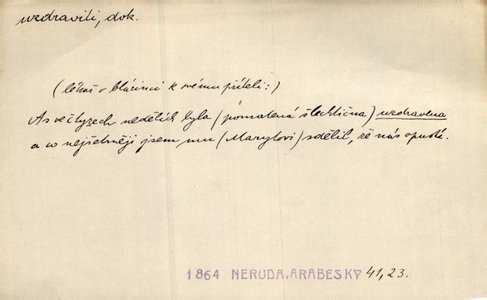 uzdraviti, dok.
(lékař v blázinci k svému příteli:)
As ve čtyřech nedělích byla (pomatená šlechtična) uzdravena
a co nejšetrněji jsem mu (Marylovi) sdělil, že nás opustí.
1864 NERUDA, ARABESKY 41,23.